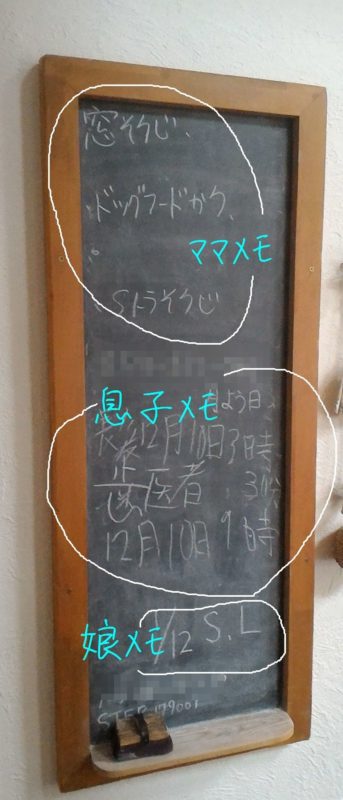 窓そうじ、
ドッグフードかう、
ママメモ
Sトラそうじ
息子メモ
よう日、
12月10日3時、
歯医者 30分
12月10日9時
娘メモ
1/12 S.L